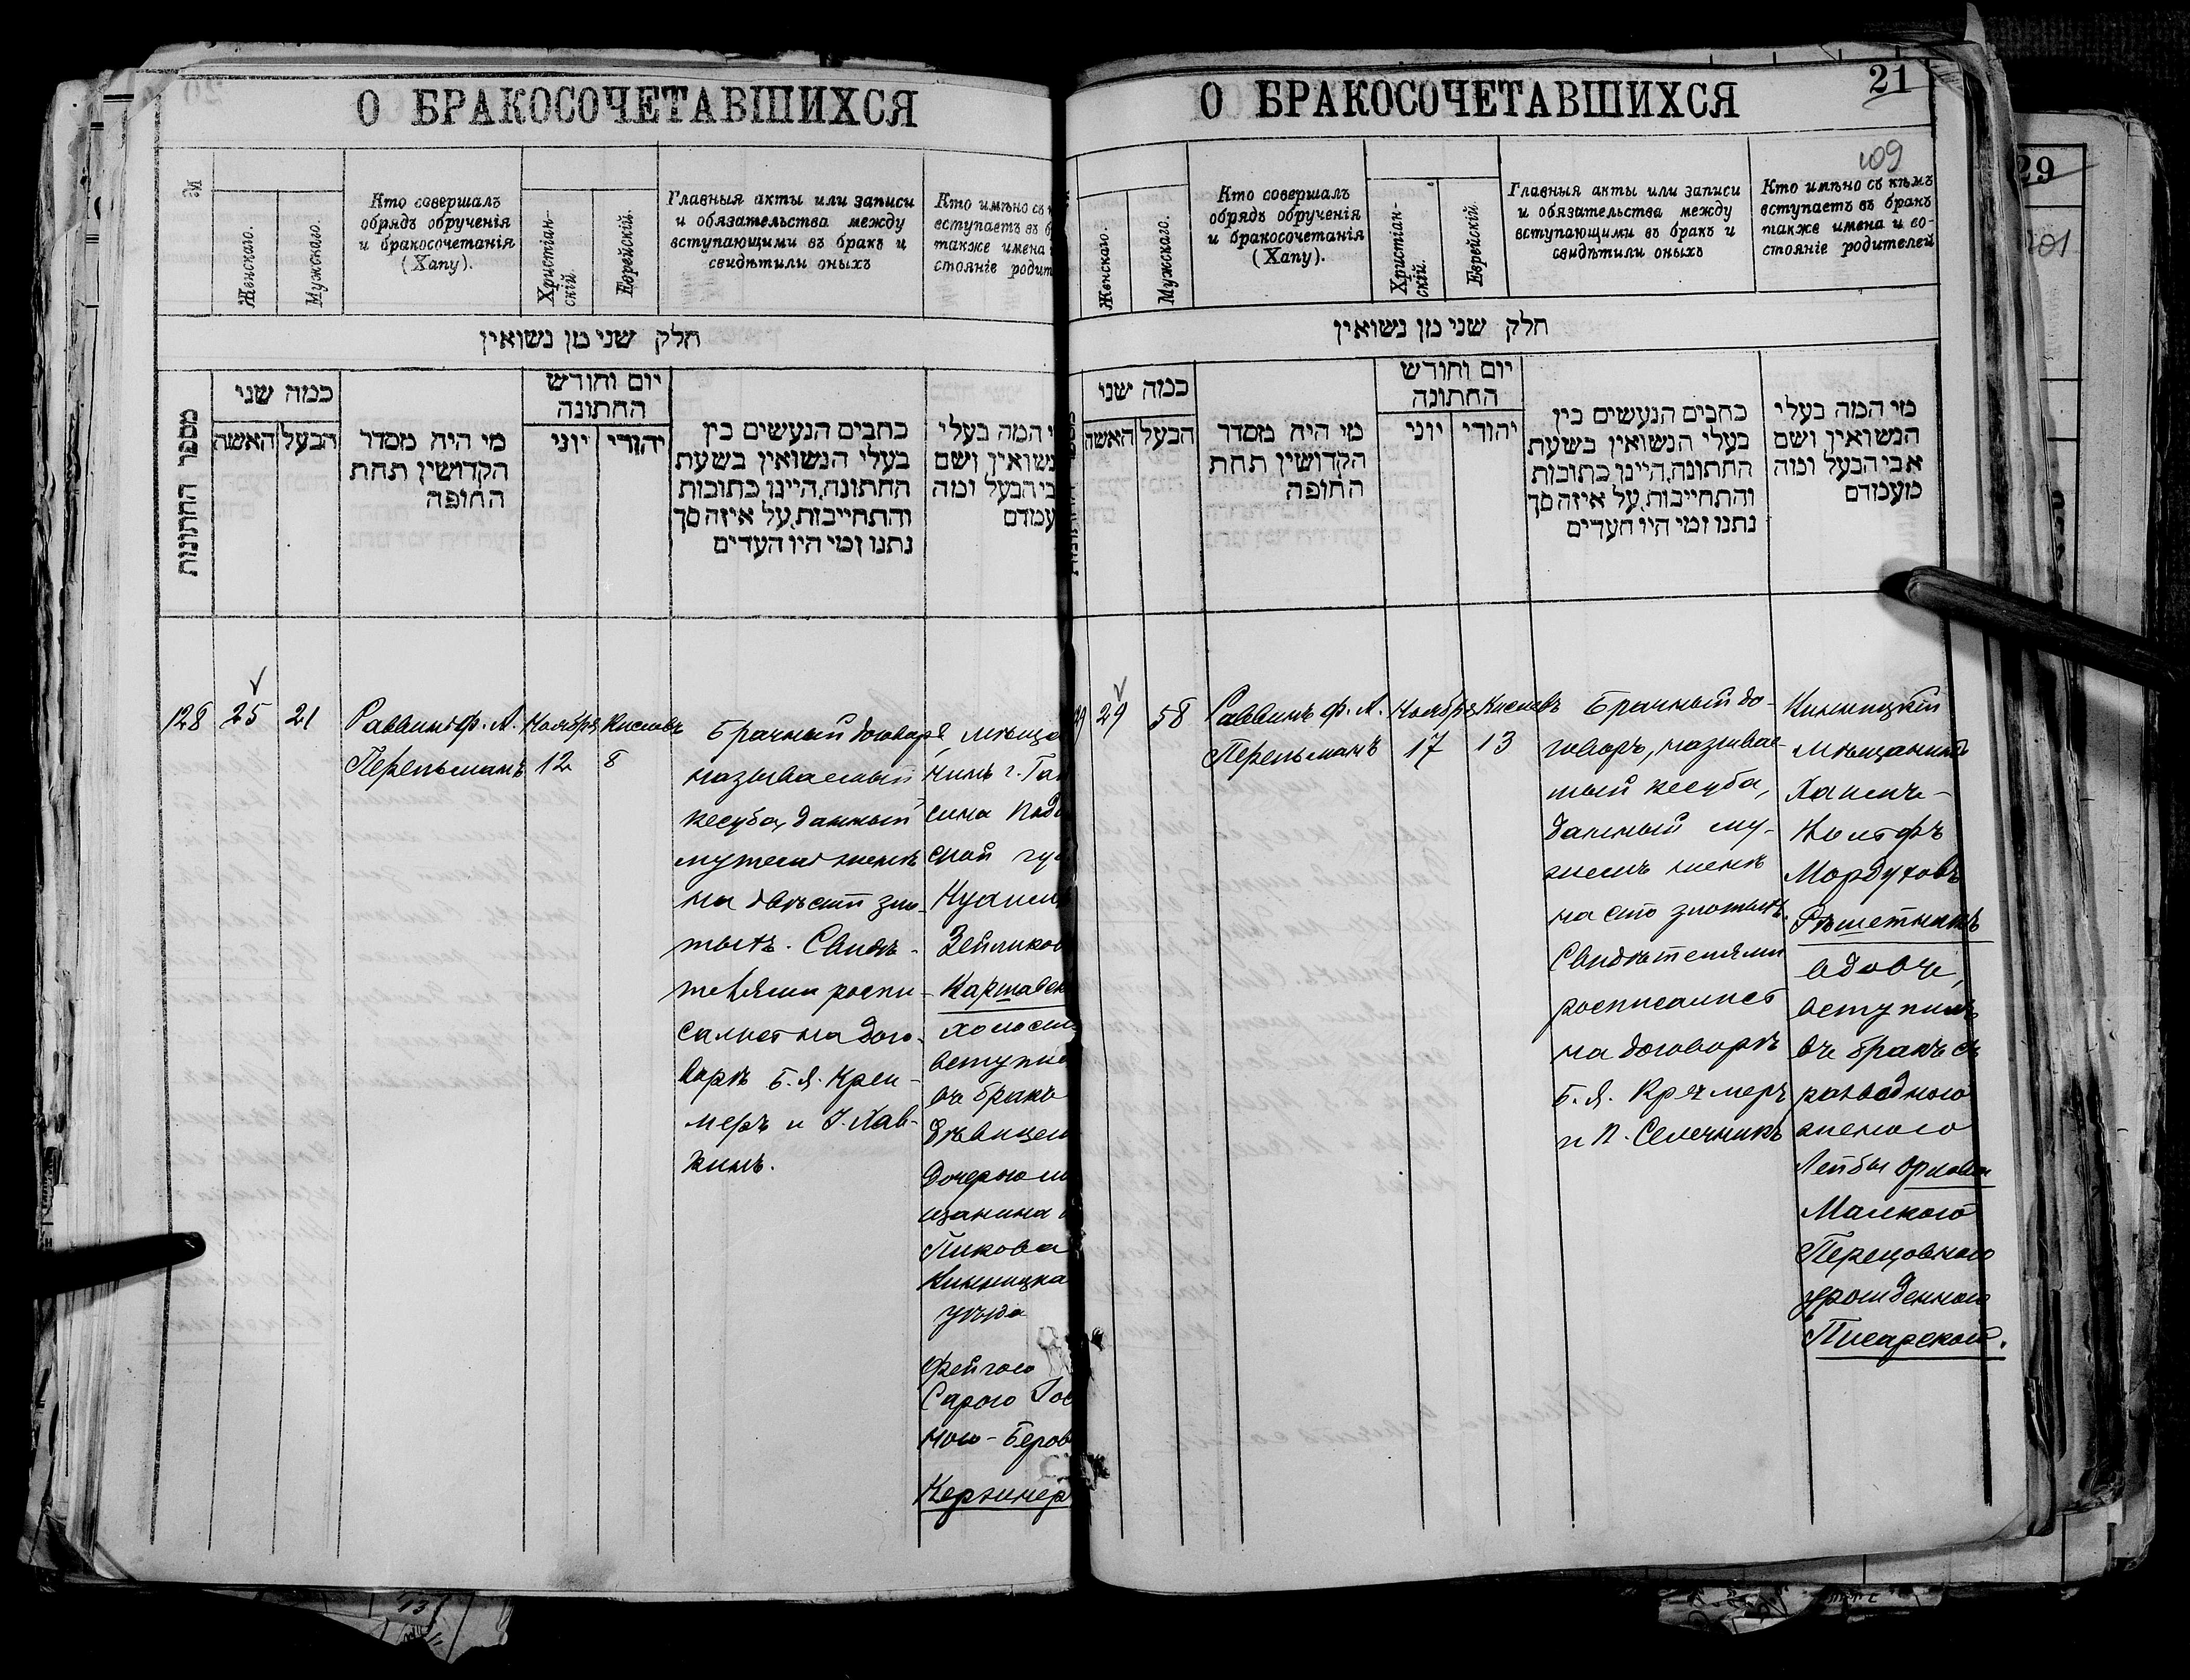 О БРАКОСОЧЕТАВШИХСЯ
№
Женскаго.
Мужскаго.
Кто совершалъ
обрядъ обрученія
и бракосочетанія
(Хапу).
Христіан-
скій.
Еврейскій.
Главныя акты или записи
и обязательства между
вступающими въ бракъ и
свидѣтили оныхъ
Кто имѣно съ
вступаетъ въ
также имена
стояніе родит
חלק שני מן נשואין
מספר החתונות
כמה שני
האשה
הבעל
מי היה מסדר
הקדושין תחת
החופה
יום וחודש
החתונה
יוני
יהודי
כתבים הנעשים בין
בעלי הנשואין בשעת
החתונה, היינו כתובות
והתחייבות, על איזה סך
נתנו ומי היו העדים
י המה בעלי
נשואין ושם
בי הבעל ומה
עמדם
128
25
21
Раввинъ Ф. А.
Перельманъ
Ноября
12
Кислевъ
8
Брачный договоръ
называемый
кесуба, данный
мужемъ женѣ
на двѣсти зло-
тыхъ. Свидѣ-
телями роспи-
сались на дого-
ворѣ Б. Я. Креи-
меръ и І. Хав-
кинъ.
мѣща
нинъ г. Гай
сина Подо
ской гу
Зейликов
Каршавск
холост
вступи
въ бракъ
дѣвицею
дочерью м
щанина
Пикова
Винницка
уѣзда
Фейгою
Сарою
ною-Беров
Кержнер
О БРАКОСОЧЕТАВШИХСЯ
21
109
Женскаго.
Мужскаго.
Кто совершалъ
обрядъ обрученія
и бракосочетанія
(Хапу).
Христіан-
скій.
Еврейскій.
Главныя акты или записи
и обязательства между
вступающими въ бракъ и
свидѣтили оныхъ
Кто имѣно съ кѣмъ
вступаетъ въ бракъ
также имена и со-
стояніе родителей
חלק שני מן נשואין
כמה שני
האשה
הבעל
מי היה מסדר
הקדושין תחת
החופה
יום וחודש
החתונה
יוני
יהודי
כתבים הנעשים בין
בעלי הנשואין בשעת
החתונה, היינו כתובות
והתחייבות, על איזה סך
נתנו ומי היו העדים
מי המה בעלי
הנשואין ושם
אבי הבעל ומה
מעמדם
29
58
Раввинъ Ф. А.
Перельманъ
Ноября
17
Кислевъ
13
Брачный до-
говоръ, называе-
мый кесуба,
данный му-
жемъ женѣ
на сто злотыхъ.
Свидѣтелями
росписались
на договорѣ
Б. Я. Кремеръ
и П. Селечникъ
Винницкій
мѣщанинъ
Мордуховъ
Рѣшетникъ
вдовецъ,
вступилъ
въ бракъ съ
разводною
женою
Лейбы Орловъ
Малкою
Перецовною
урожденною
Писарской.
29
101